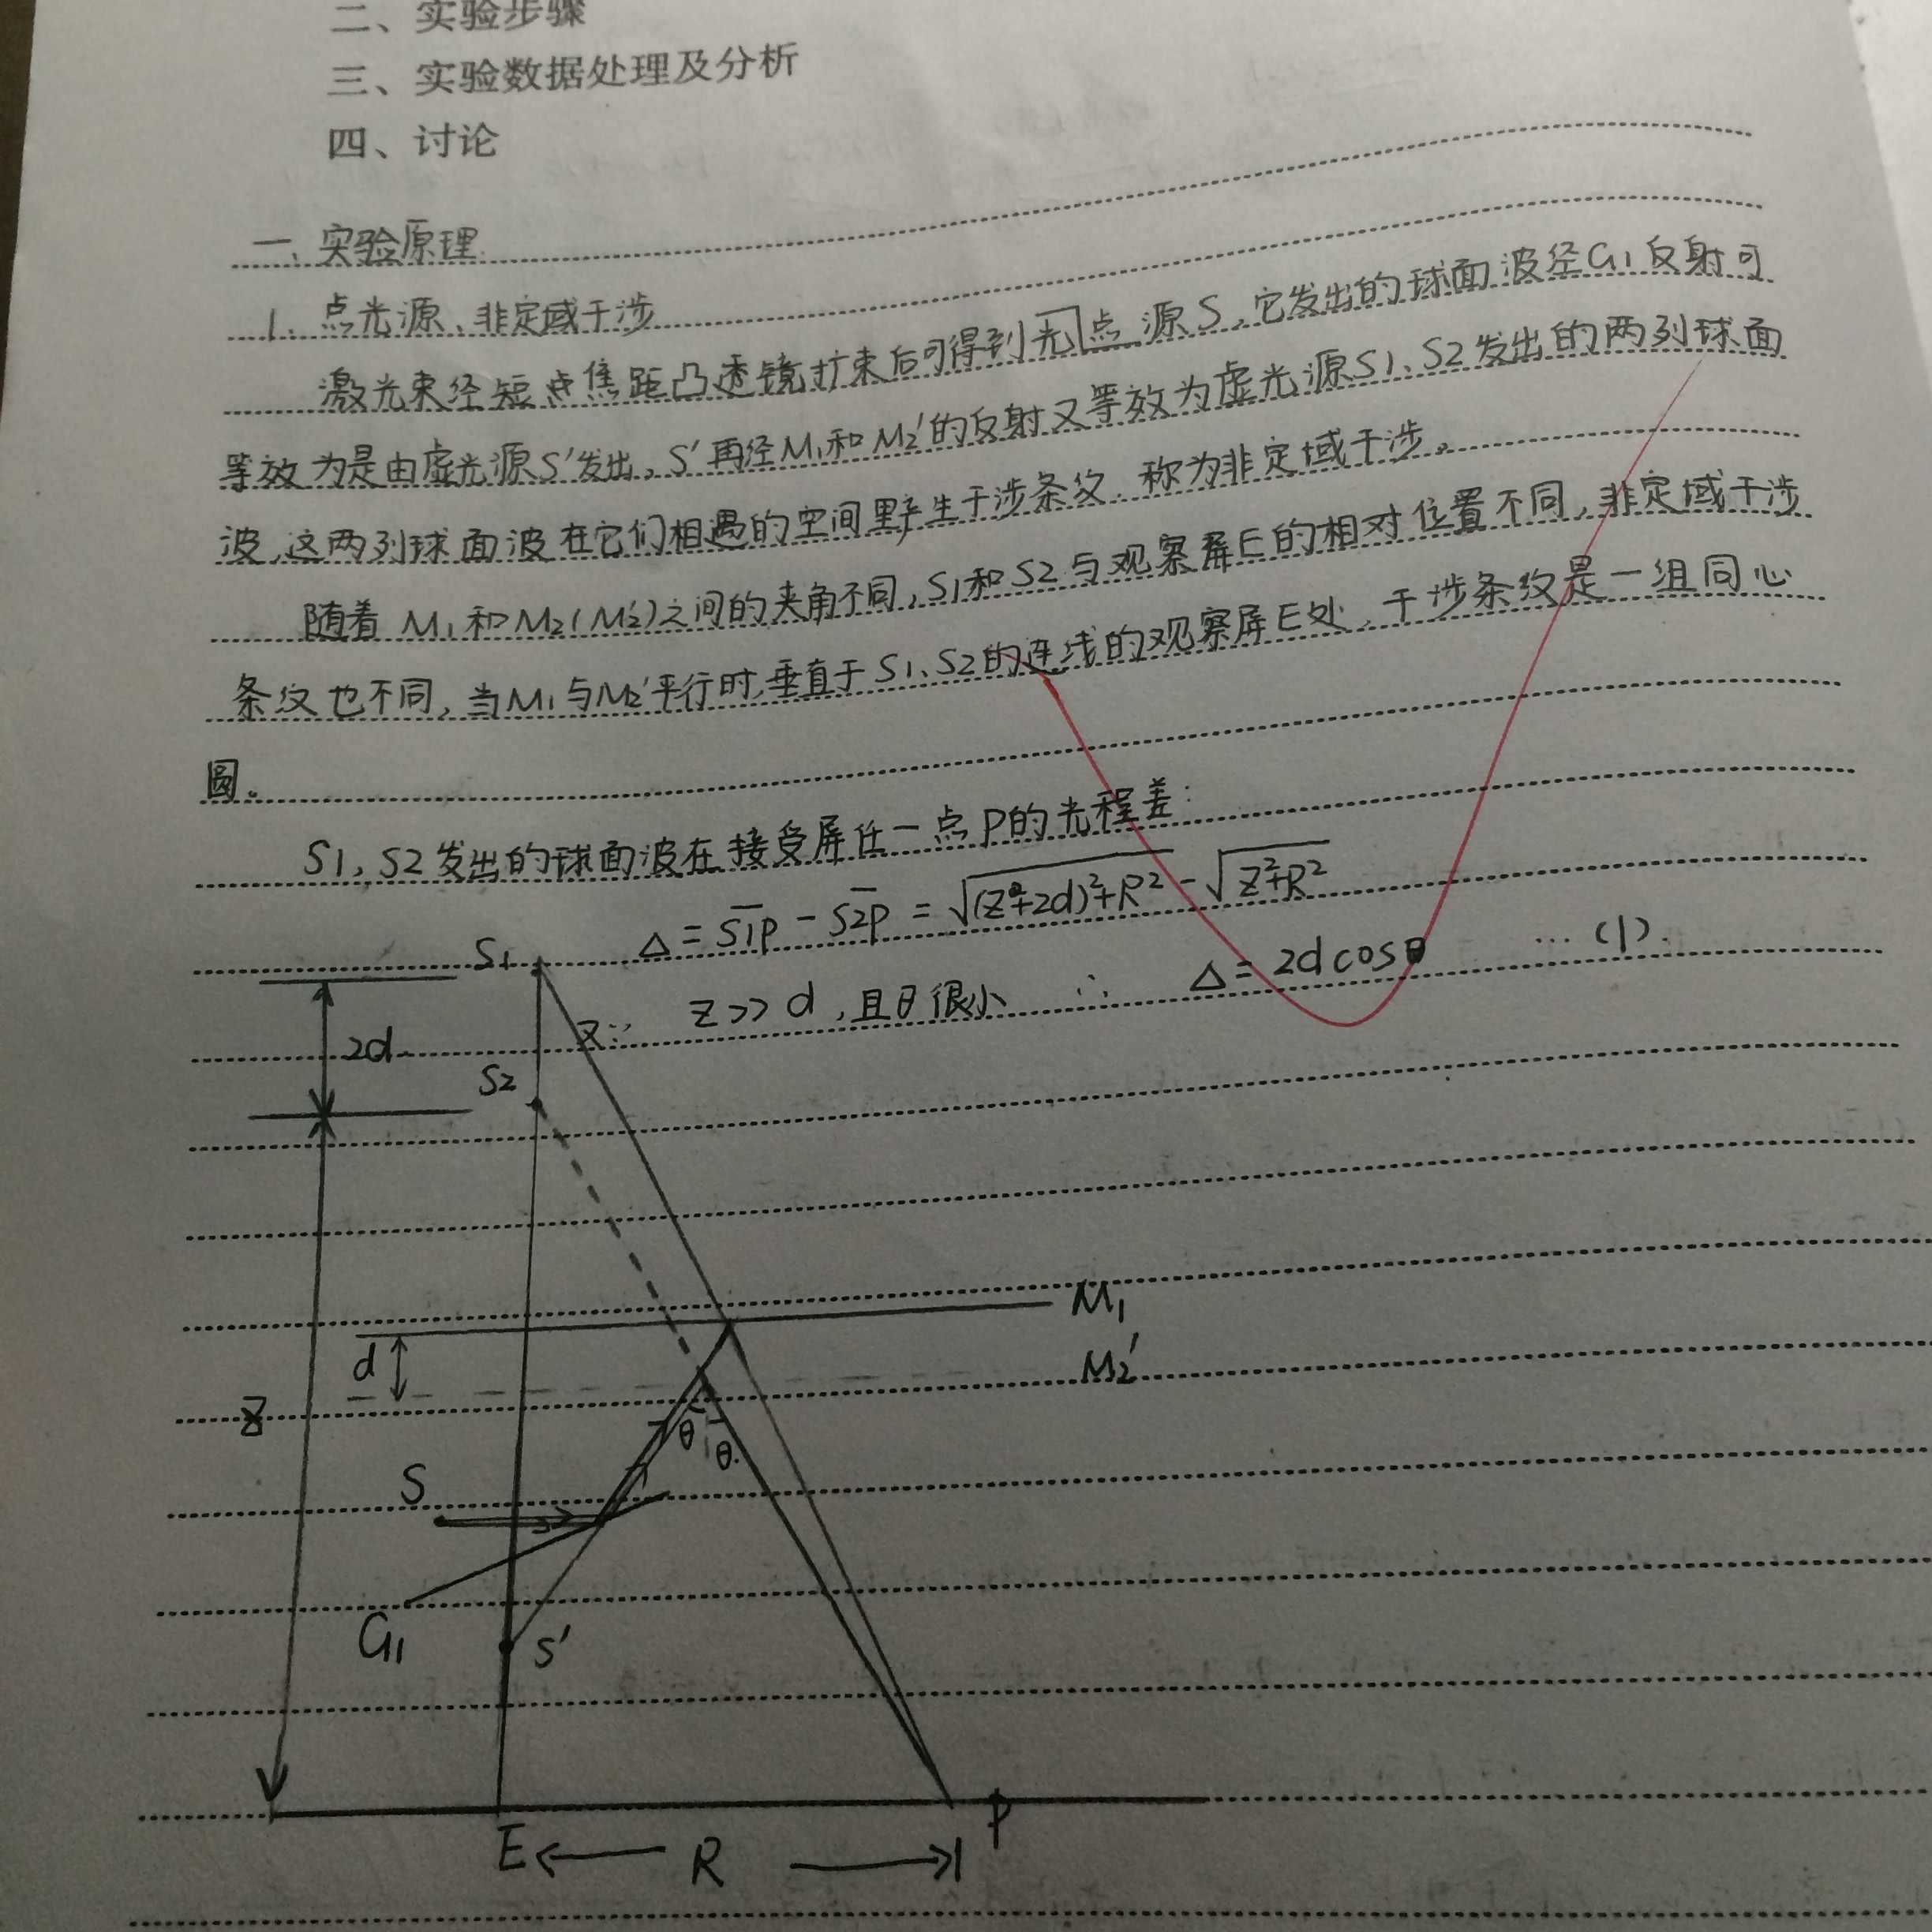 二、实验步骤
三、实验数据处理及分析
四、讨论
一、实验原理
1、点光源、非定域干涉
激光束经短焦距凸透镜扩束后可得到光点源S,它发出的球面波径G1反射可
等效为是由虚光源S'发出,S'再经M1和M2'的反射又等效为虚光源S1、S2发出的两列球面
波,这两列球面波在它们相遇的空间里产生干涉条纹,称为非定域干涉。
随着M1和M2(M2')之间的夹角不同,S1和S2与观察屏E的相对位置不同,非定域干涉
条纹也不同,当M1与M2'平行时,垂直于S1、S2的连线的观察屏E处,干涉条纹是一组同心
圆。
S1,S2发出的球面波在接受屏任一点P的光程差:
Δ = S1P - S2P = √(Z+2d)²+R² - √Z²+R²
又∵ Z>>d,且θ很小 ∴ Δ = 2dcosθ …(1).
S1
2d
S2
M1
d
M2'
Z
θ θ
S
G1
S'
E R P